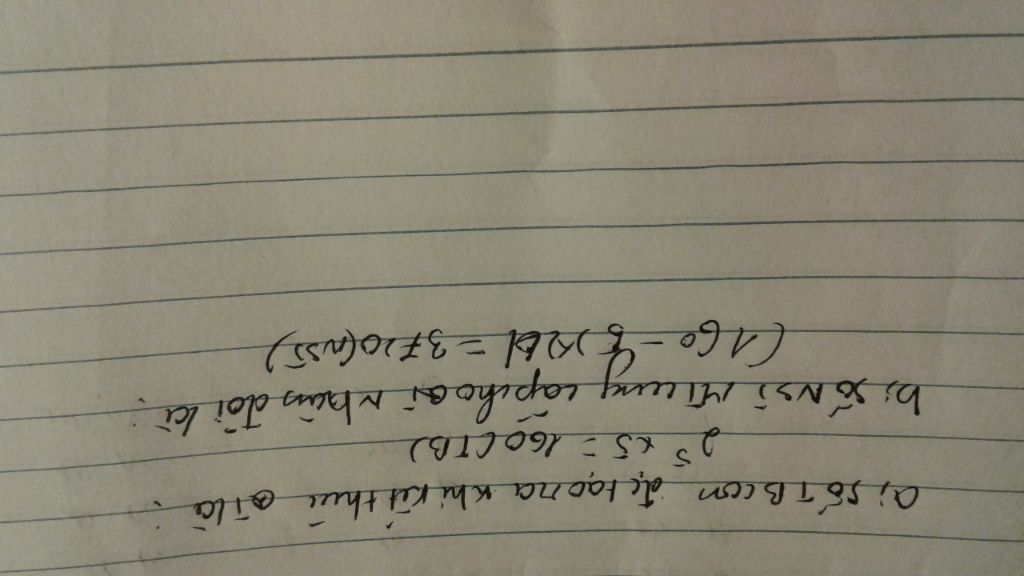 a, số TB con đc tạo ra khi kết thúc là :
2⁵ x 5 = 160 (TB)
b, số NST cung cấp cho nhân đôi là :
(160 - 5) x 24 = 3720 (NST)